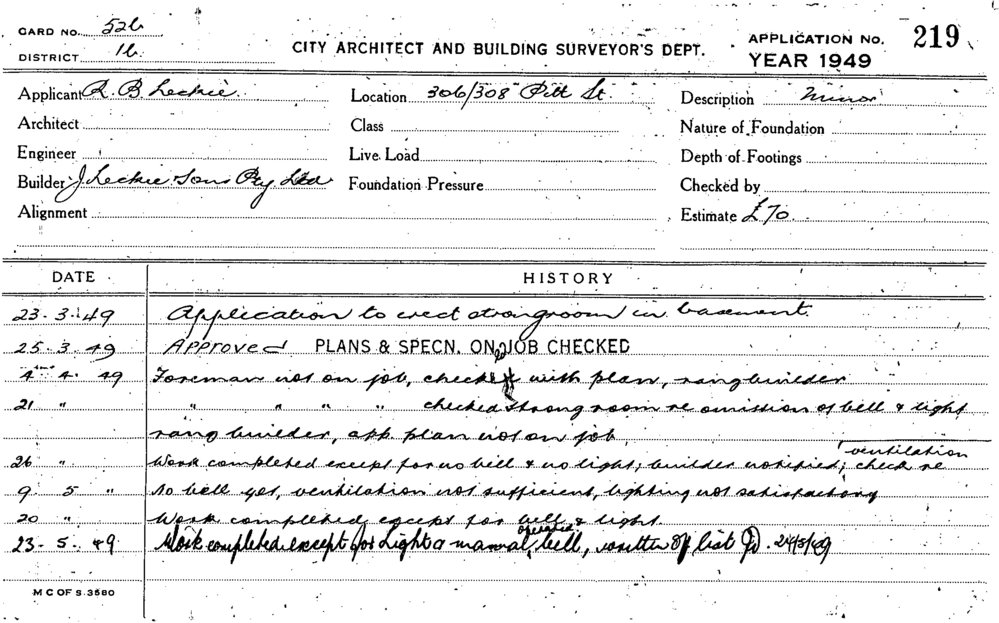 CARD NO. 526
DISTRICT 16
CITY ARCHITECT AND BUILDING SURVEYOR'S DEPT.
APPLICATION NO. 219
YEAR 1949
Applicant R. B. Leckie.
Location 306/308 Pitt St.
Description Minor
Architect
Class
Nature of Foundation
Engineer
Live Load
Depth of Footings
Builder J. Leckie Sons Pty. Ltd
Foundation Pressure
Checked by
Alignment
Estimate £70
DATE HISTORY
23. 3. 49 Application to erect strongroom in basement.
25. 3. 49 Approved PLANS & SPECN. ON JOB CHECKED
4 4. 49 Foreman not on job, checked with plan, rang builder
21 " " " " " checked strong room re omission of bell & light
rang builder, app. plan not on job
26 " Work completed except for no bell & no light; builder notified; check re ventilation
9 5 " No bell yet, ventilation not sufficient, lighting not satisfactory
20 " Work completed except for bell & light.
23. 5. 49 Work completed except for Light & manual operated bell, written off list 24/5/49
M C OF S. 3580